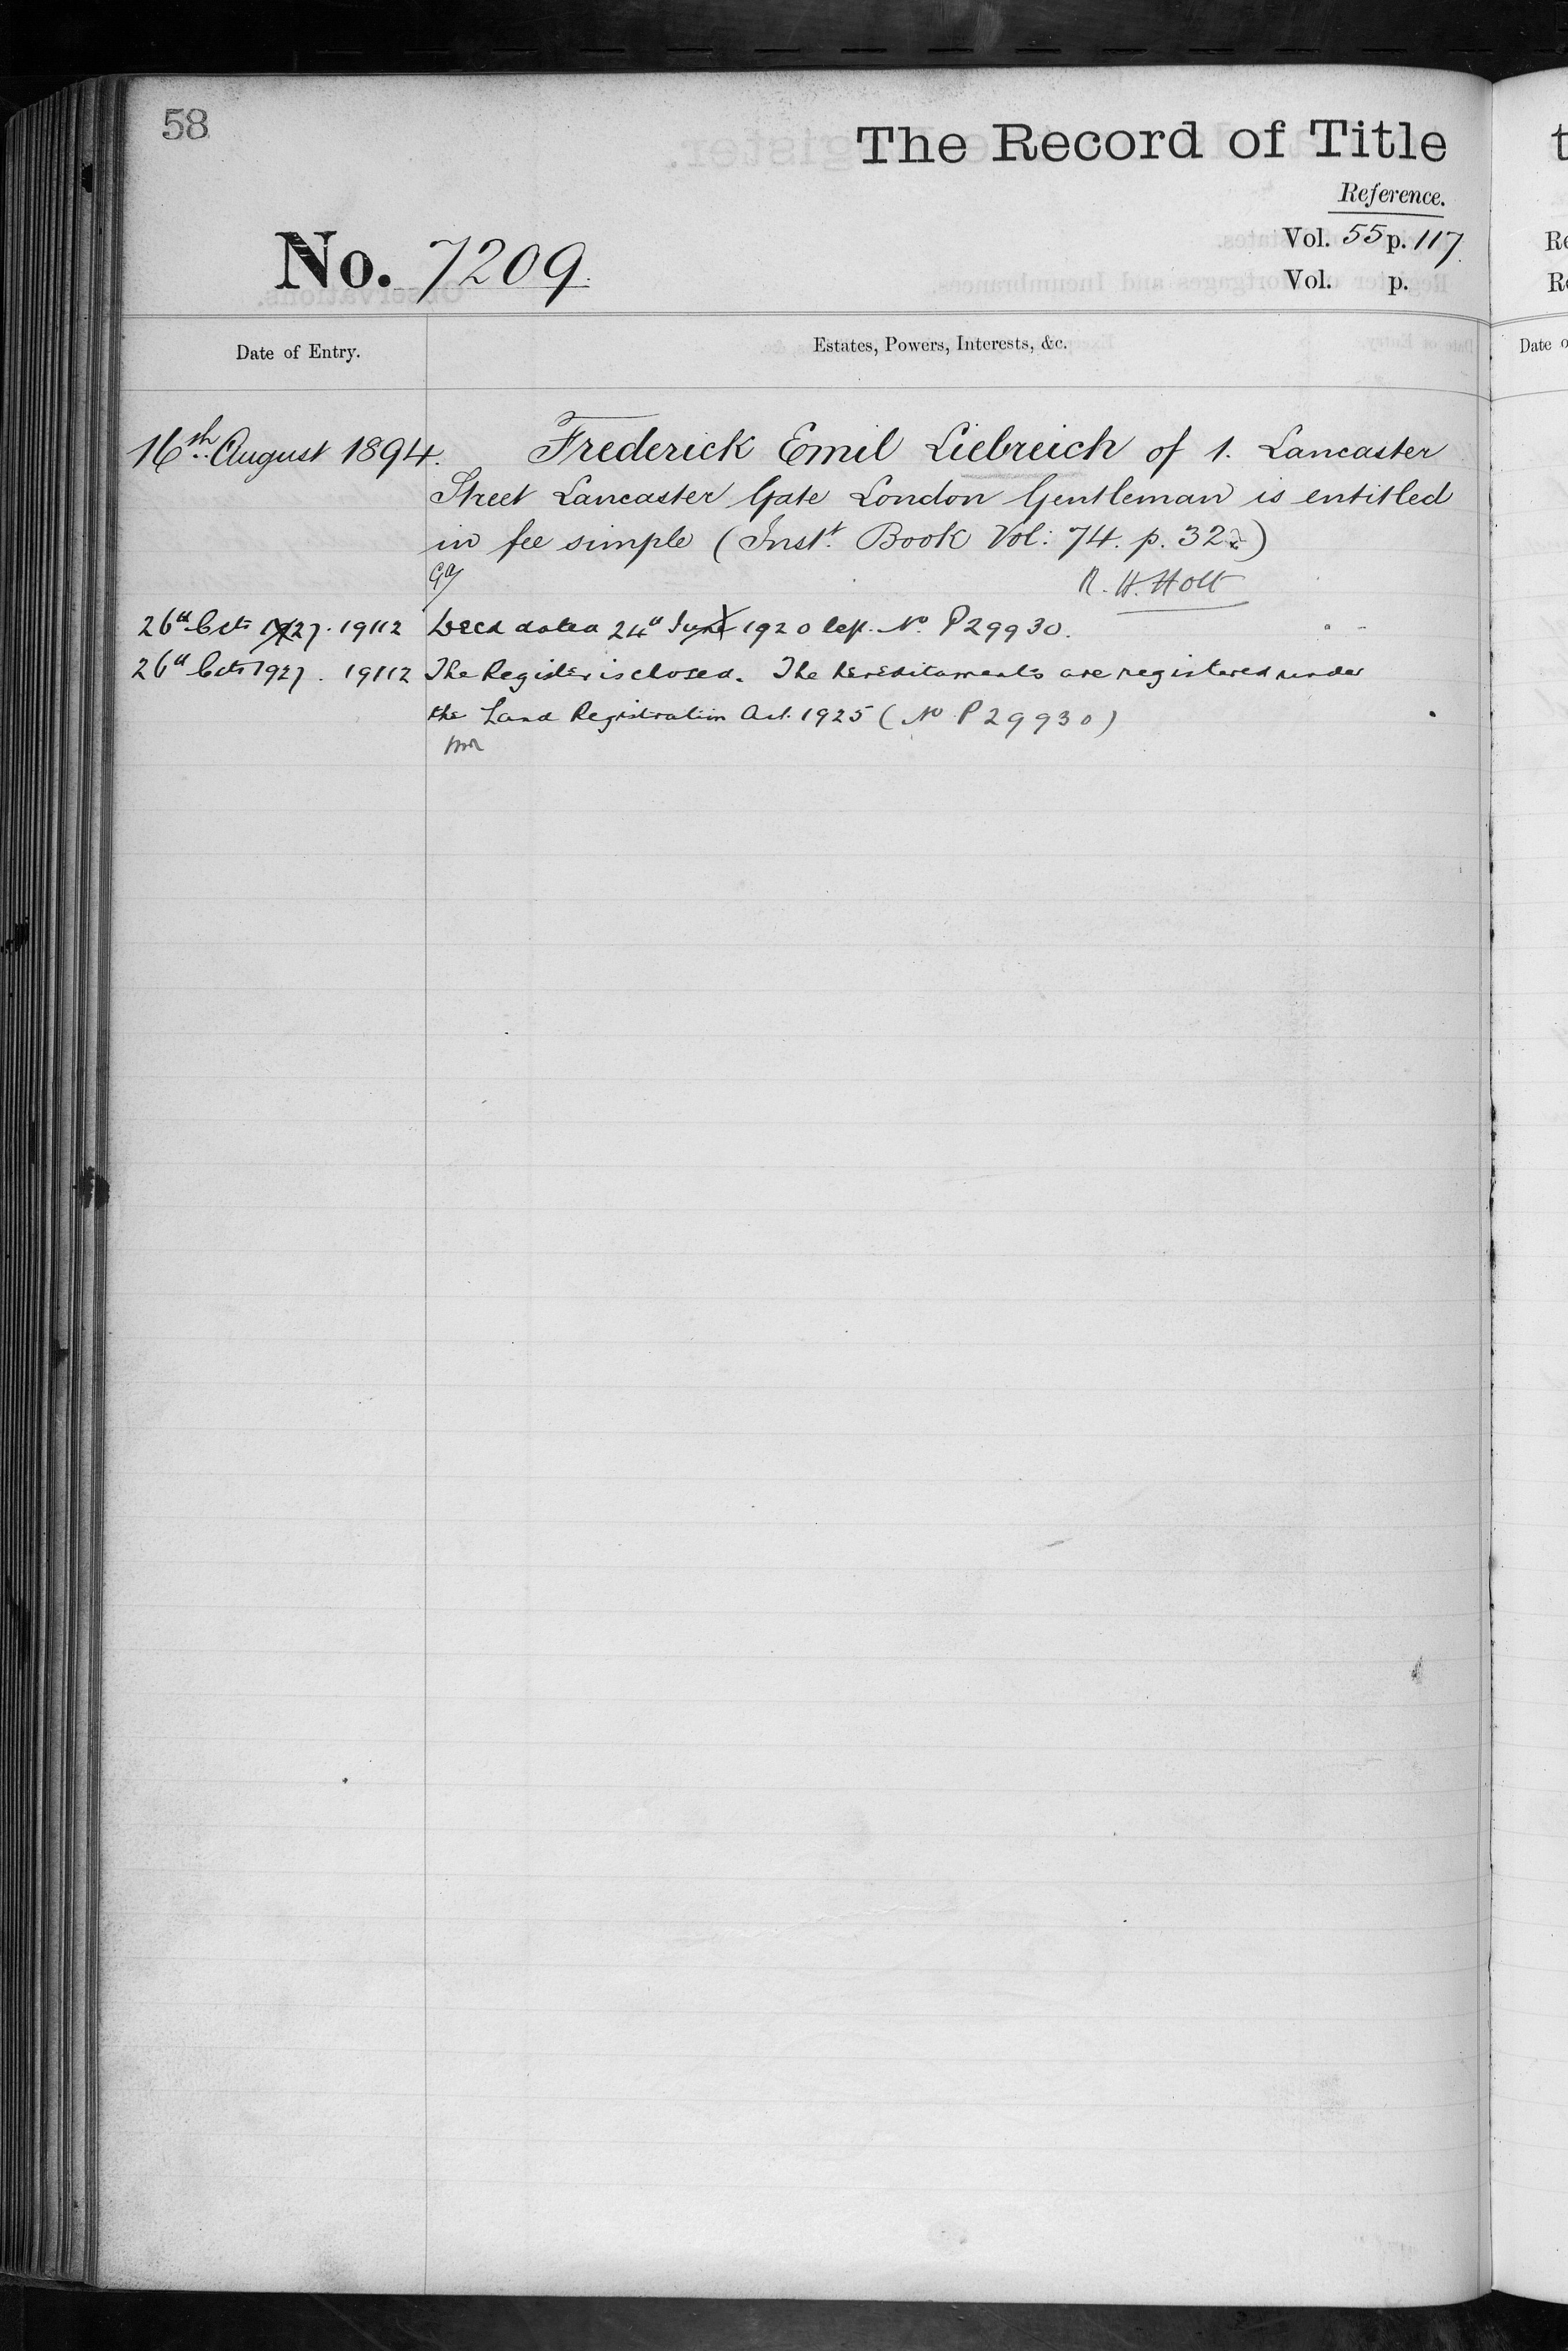 58
The Record of Title
Reference.
No. 7209.
Vol. 55 p. 117.
Vol. p.
Date of Entry.
Estates, Powers, Interests, &c.
16th August 1894. Frederick Emil Liebreich of 1. Lancaster
Street Lancaster Gate London Gentleman is entitled
in fee simple (Inst. Book Vol: 74. p. 32
R. H. Holt
26th Oct 1927. 19112 Deed dated 24th June 1920 dep. No. P29930.
26th Oct 1927. 19112 The Register is closed. The hereditaments are registered under
the Land Registration Act. 1925 (No P29930)
t
Date o